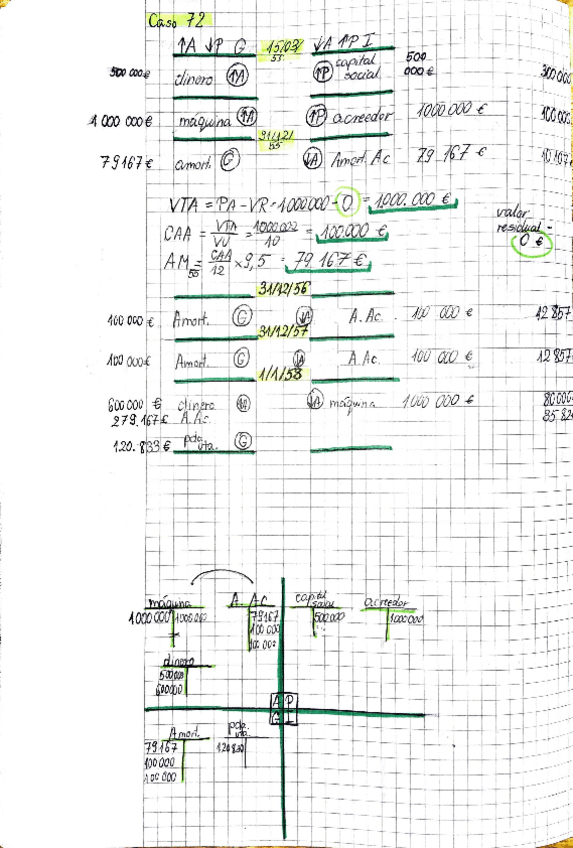 Caso 72
↑A ↓P G 15/03/55 ↓A ↑P I
500 000 € dinero ↑A ↑P capital social 500 000 € 300 000
1 000 000 € máquina ↑A ↑P acreedor 1000 000 € 100 000
31/12/55
79167 € amort. G ↓A Amort. Ac 79 167 €
VTA = PA - VR = 1000 000 - 0 = 1000.000 €
valor residual = 0 €
CAA = VTA/VU = 1000 000/10 = 100.000 €
AM 55 = CAA/12 × 9,5 = 79.167 €
31/12/56
100 000 € Amort. G ↓A A. Ac. 100 000 € 12 857
31/12/57
100 000 € Amort. G ↓A A. Ac. 100 000 € 12 857
1/1/58
600 000 € dinero ↑A ↓A máquina 1000 000 €
279.167 € A. Ac.
120.833 € pda. vta. G
máquina A. Ac capital social acreedor
1000 000 1000 000 79167 500 000 1000 000
100 000
100 000
dinero
500 000
600 000
A P
G I
Amort. pda. vta.
79.167
100 000
100 000